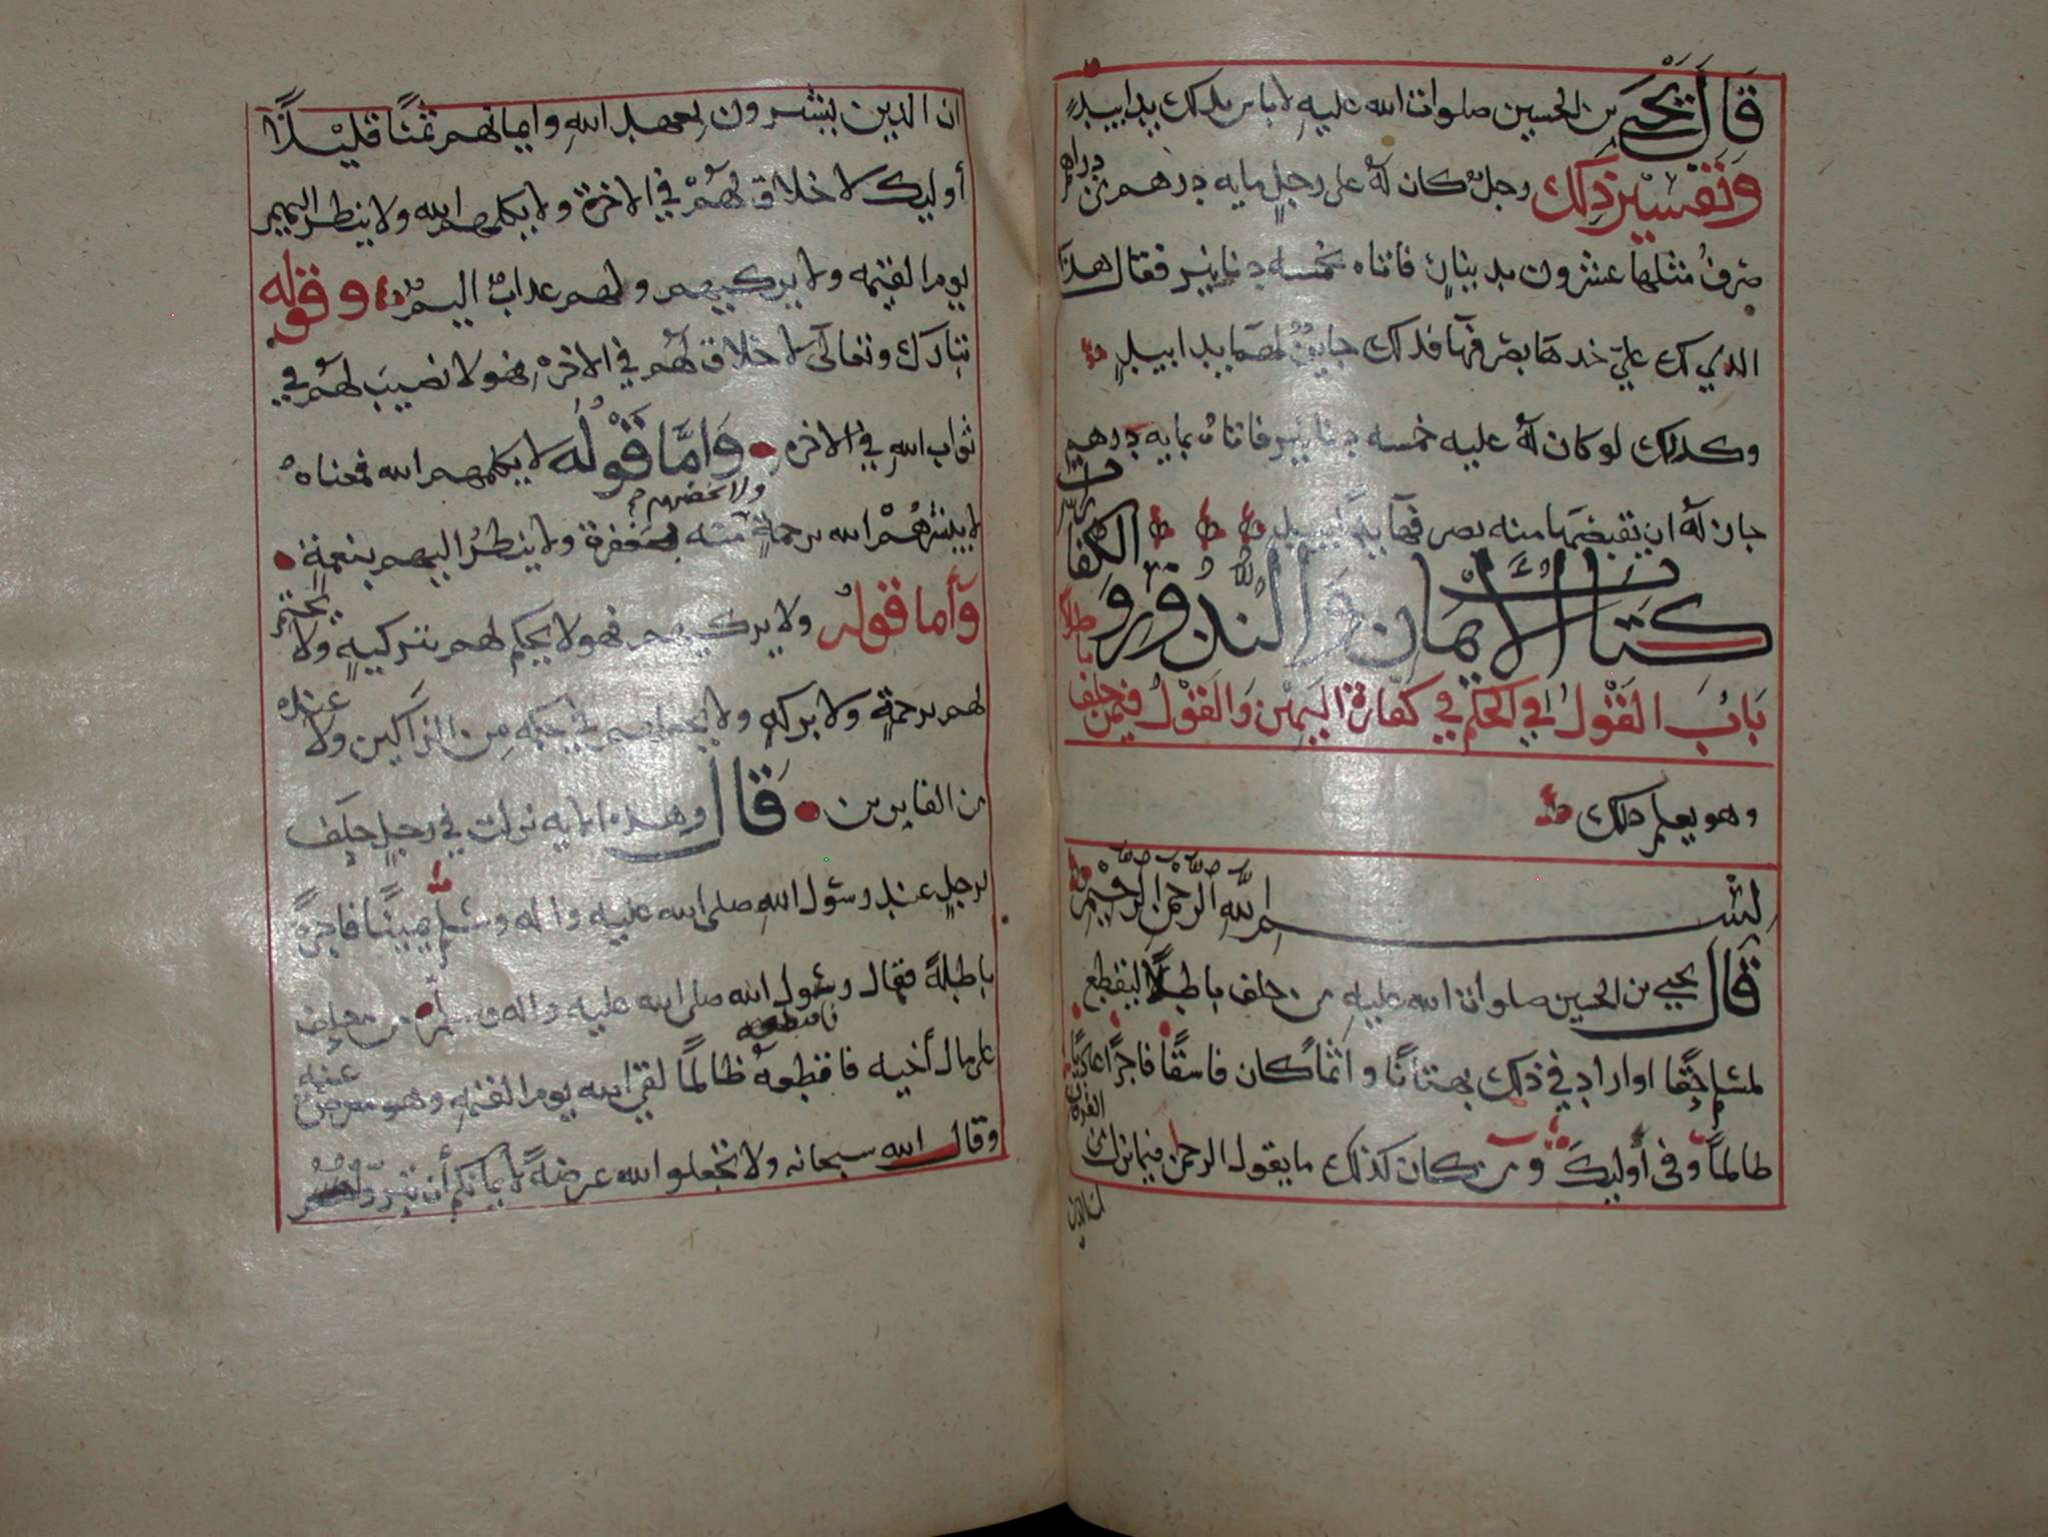 قَالَ يَحْيَى بن الحسين صلوات الله عليهِ لا باس بذلك يدا بيدٍ
وتفسير ذلك رجل كان لهُ على رجلٍ مايه درهم من دراهم
صرفُ مثلها عشرون بدينارٍ فاتاه بخمسه دنانير فقال هذا
الذي لك عليّ خذها بصرفها فذلك جايزٌ لهما يدا بيدٍ
وكذلك لو كان لهُ عليه خمسه دنانير فاتاهُ بمايه درهم
جاز لهُ ان يقبضها منه بصرفها يداً بيدٍ
كتاب الأيمان والنذور والكفارات
بَابُ القَوْلُ في الحكم في كفارة اليمين وَالقَوْلُ فيمن حلف باطلا
وهو يعلم ذلك
بسم الله الرحمن الرحيم
قَالَ يحيى بن الحسين صلوات الله عليهِ من حلف باطلاً ليقطع
لمسلم حقًا اواراد في ذلك بهتانًا واثماً كان فاسقًا فاجرًا عاديًا
ظالماً وفى أوليكَ ومن كان كذلك ما يقول الرحمن فيما نزل من القرءان
ان الذين يشترون بعهد اللهِ وايمانهم ثمنًا قليْلاً
أوليك لا خلاق لهُمْ في الاخرة ولا يكلمهم الله ولا ينظر اليهم
يوم القيمه ولا يزكيهم ولهم عذابٌ اليمٌ وقوله
تبارك وتعالى لا خلاق لهُم في الاخرة فهو لا نصيبَ لهُم في
ثواب اللهِ في الاخره وَامَّا قَوْلُهُ لا يكلمهم الله فمعناهُ
لا يبشرهُمْ الله برحمةٍ منه ولا يخصهم بمغفرة ولا ينظرُ اليهم بنعمةٍ
وأما قولهُ ولا يزكيهم فهو لا يحكم لهم بتزكيةٍ ولا يختم
لهم برحمةٍ ولا بركهٍ ولا يجعلهم في حكمه مِن الزاكين ولا عنده
من الفايزين قَالَ وهذه الايه نزلت في رجلٍ حلَف
لرجلٍ عند رسول اللهِ صلى الله عليه واله وسلم يمينًا فاجرةً
باطلةً فقال رسول الله صلى الله عليه واله وسلم من حلف
على مال أخيه فاقتطعهُ ظالمًا لقي الله يوم القيمهِ وهو معرضٌ عنه
وقال الله سبحانه ولا تجعلوا الله عرضةً لايمانكم أن تبروا